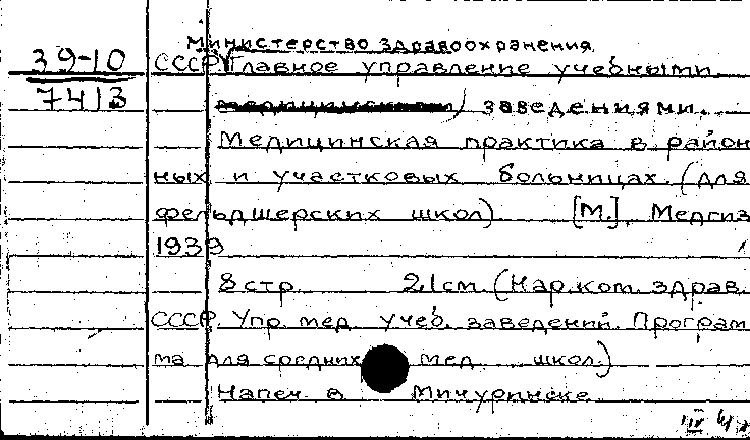 Министерство здравоохранения.
39-10 СССР. Главное управление учебными
7413 заведениями.
Медицинская практика в район
ных и участковых больницах. (для
фельдшерских школ) [М.], Медгиз
1939
8 стр 21 см. (Нар. ком. здрав.
СССР. Упр. мед. учеб. заведений. Програм
ма для средних мед. школ.)
Напеч. в Мичуринске